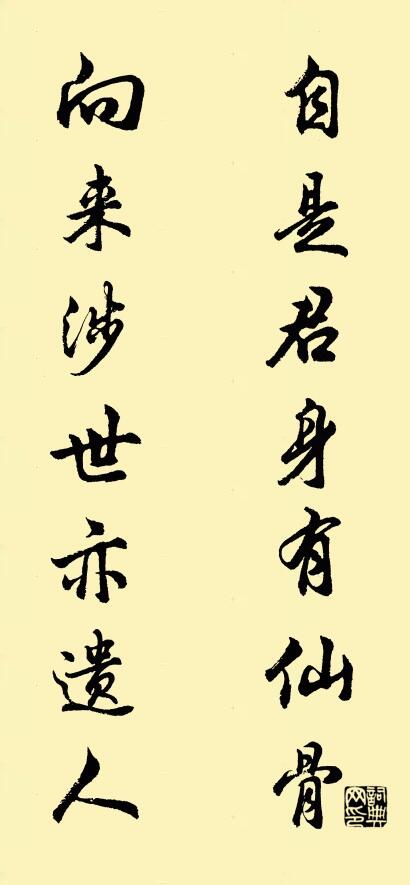 自是君身有仙骨
向来涉世亦遗人
詞典網印